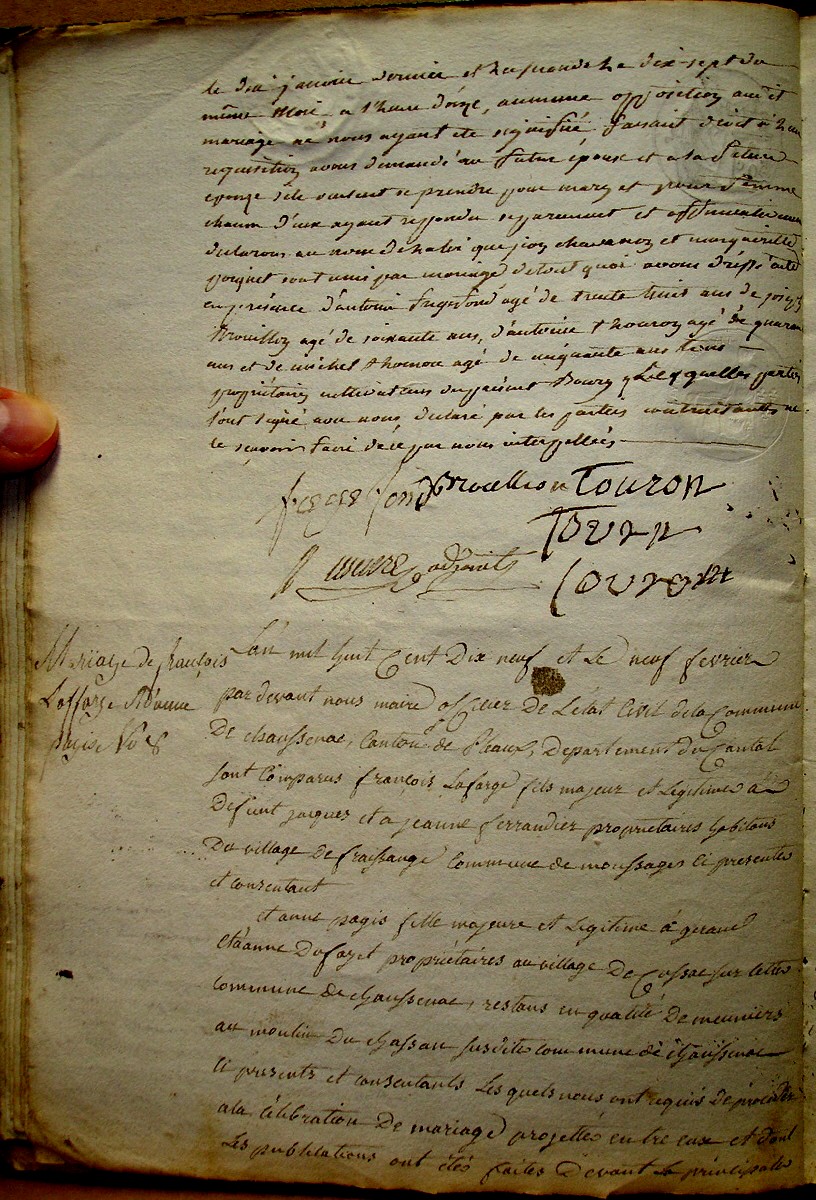 le dix janvier dernier et la seconde le dix-sept du
même mois a l'heure d'onze, aucunne opposition audit
mariage ne nous ayant été signifié faisant droit à leur
requisition avons demandé au futur époux et a la future
epouze s'ils veulent se prendre pour mary et pour femme
chacun d'eux ayant repondu separement et affirmativement
declarons au nom de la loi que jean chavanon et marguerite
poignet sont unis par mariage de tout quoi avons dressé acte
en présence d'antoine agé de trente trois ans de joseph
Brouillon agé de soixante ans, d'antoine thouron agé de quarante
ans et de michel agé de cinquante ans tous
propriétaires cultivateurs du présent Bourg Lesquelles parties
ont signé avec nous declaré par les parties contractantes ne
le sçavoir faire de ce par nous interpellés
Brouillon Touron
Tourn
adjoint Touron
Mariage de françois
Lafforge et d'anne
pagis No 8
L'an mil huit Cent Dix neuf et Le neuf fevrier
par devant nous maire officier De L'état Civil de la Commune
De chaussenac, Canton de Pleaux, Departement du Cantal
sont Comparus françois Laforge fils majeur et Legitime à
Defunt jacques et a jeanne ferrandier propriétaires habitans
Du village De fraissange Commune de moussages ci presente
et consentant
et anne pagis fille majeure et Legitime à geraud
et à anne Dufayet propriétaires au village De Cussac sur
commune de chaussenac, restans en qualité De meuniers
au moulin Du chassan susdite commune de chaussenac
ci presents et consentants Lesquels nous ont requis De proceder
a la célibration De mariage projetté entre eux et dont
Les publications ont étés faites Devant La principale